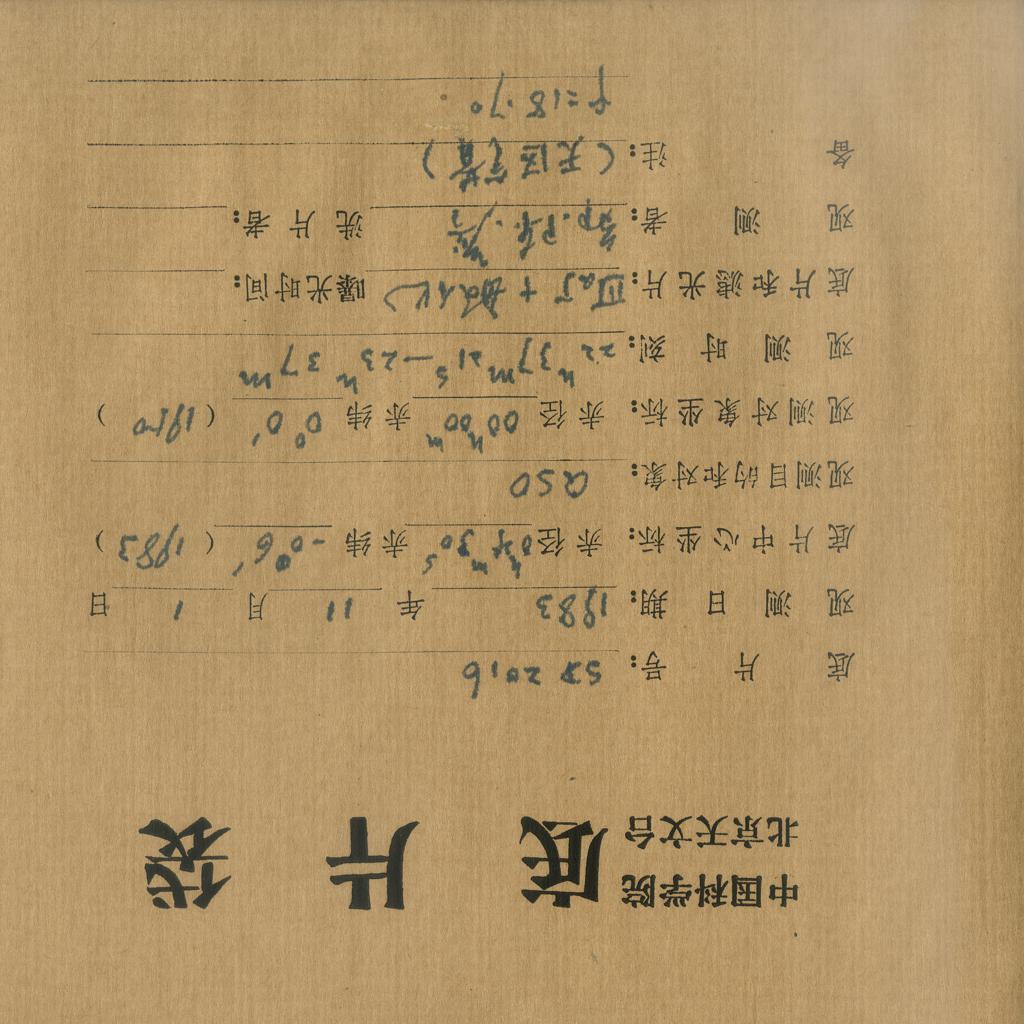 中国科学院
北京天文台 底片袋
底片号: SX 2016
观测日期: 1983 年 11 月 1 日
底片中心坐标: 赤径 0h 4m 30s 赤纬 -0° 6′ (1983)
观测目的和对象: QSO
观测对象坐标: 赤径 00h 00m 赤纬 0° 0′ (1950)
观测时刻: 22h 37m 21s — 23h 37m
底片和滤光片: ⅢaJ + 曝光时间:
观测者: 洗片者:
备注: (天区
f=18.70